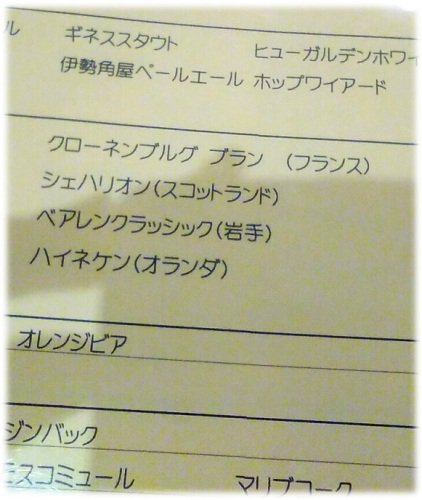 ル ギネススタウト ヒューガルデンホワイ
伊勢角屋ペールエール ホップワイアード
クローネンブルグ ブラン （フランス）
シェハリオン（スコットランド）
ベアレンクラッシック（岩手）
ハイネケン（オランダ）
オレンジビア
ジンバック
モスコミュール マリブコーク